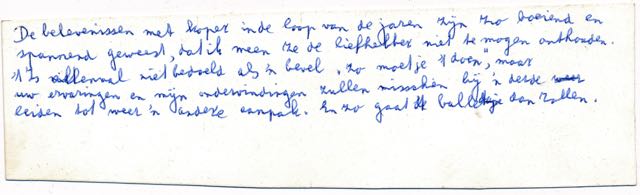 De belevenissen met koper in de loop van de jaren zijn zo boeiend en
spannend geweest, dat ik meen ze de liefhebber niet te mogen onthouden.
't Is allemaal niet bedoeld als 'n bevel "zo moet je 't doen", maar
uw ervaringen en mijn ondervindingen zullen misschien bij 'n derde
leiden tot weer 'n andere aanpak. En zo gaat 't balletje dan rollen.